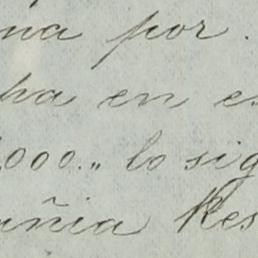 na por.
ha en es
.000.„ lo sig
añia Res